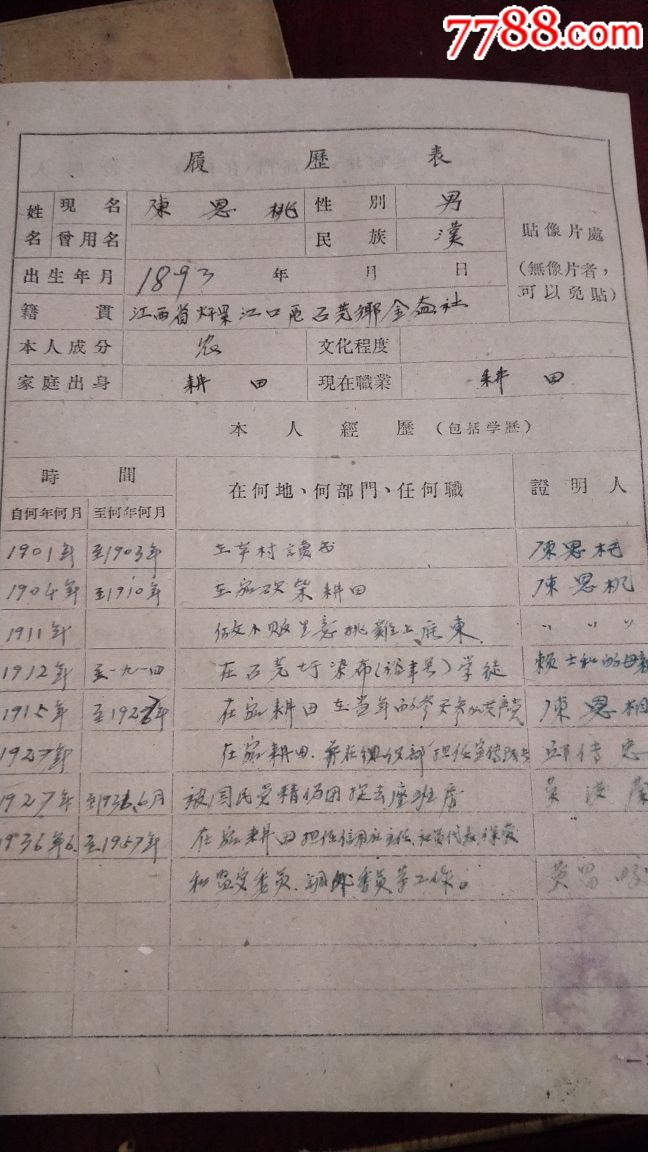 7788.com
履歷表
姓名 現名 陳思桃 性別 男
曾用名 民族 漢
貼像片處
(無像片者,
可以免貼)
出生年月 1893 年 月 日
籍貫 江西省 江口區石芫鄉金益社
本人成分 农 文化程度
家庭出身 耕田 現在職業 耕田
本人經歷(包括学歷)
時間 在何地、何部門、任何職 證明人
自何年何月 至何年何月
1901年 至1903年 在本村讀书 陳思
1904年 至1910年 在家 柴耕田 陳思
1911年 做小贩生意 〃 〃 〃
1912年 至一九一四 在石芫圩染布 学徒 賴士 的母親
1915年 至192 年 在家耕田 在当年的 参加共产党 陳思桐
1927年 在家耕田 并在 部担任宣传 邱传忠
1927年 至1936.6月 被国民党 團捉去 吴洪
1936年6 至1957年 在家耕田担任信用社主任、社員代表
和监察委員、調解委員等工作。 黄